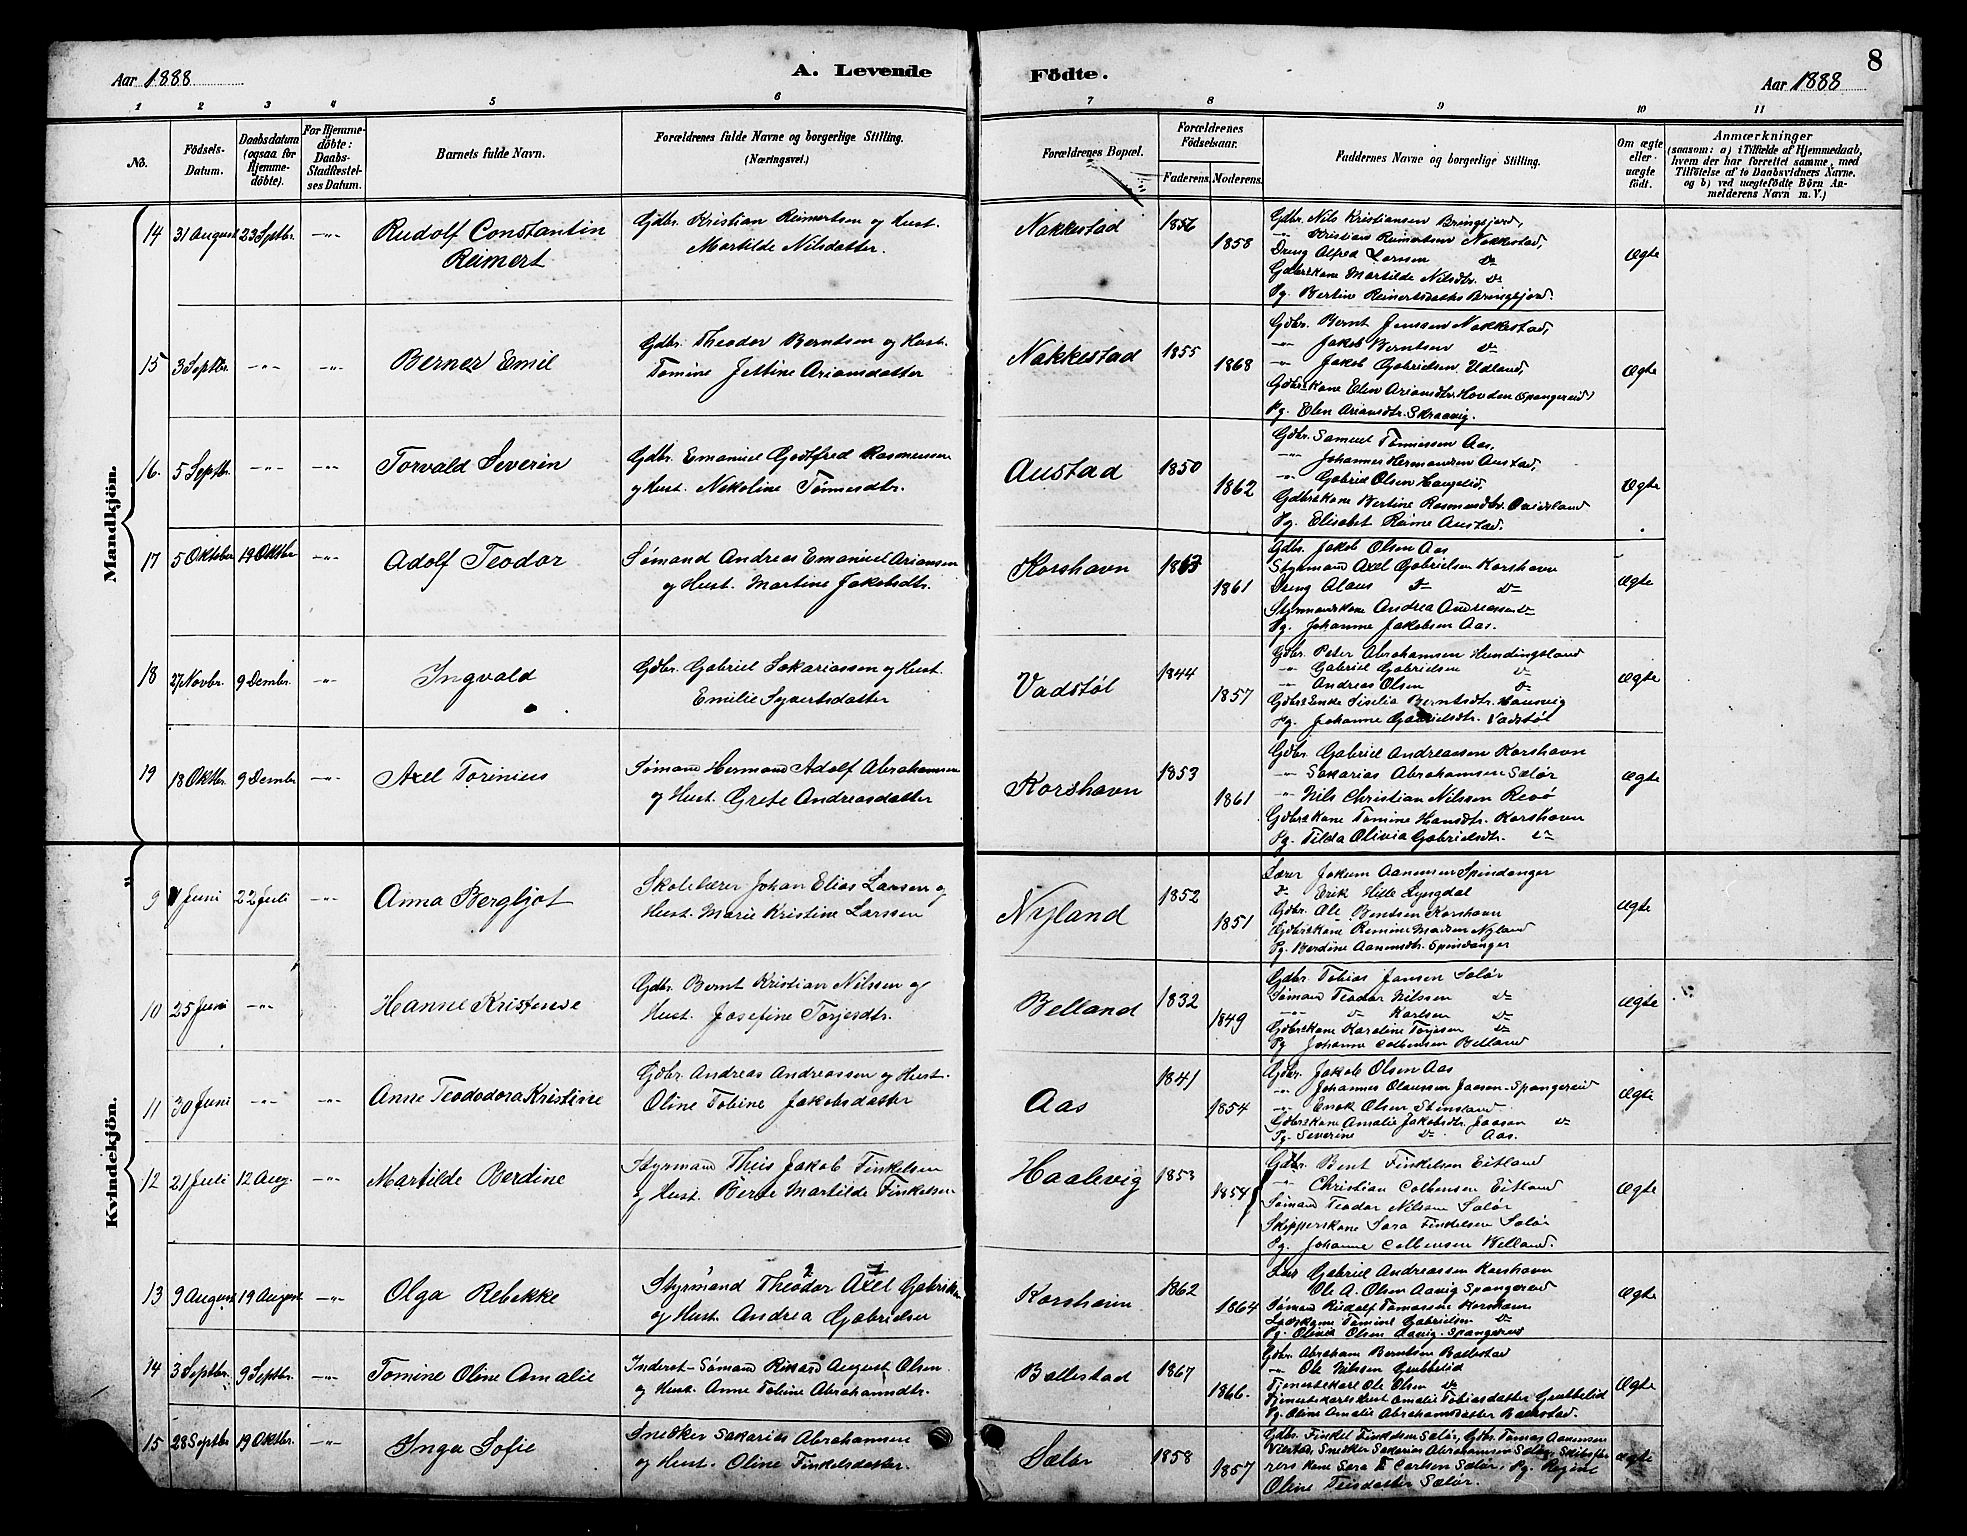 8
Aar 1888
A. Levende Födte.
Aar 1888
1 2 3 4 5 6 7 8 9 10 11
No.
Födsels-Datum.
Daabsdatum (ogsaa for Hjemme-döbte).
For Hjemme-döbte: Daabs-Stadfæstel-ses Datum.
Barnets fulde Navn.
Forældrenes fulde Navne og borgerlige Stilling. (Næringsvei.)
Forældrenes Bopæl.
Forældrenes Födselsaar.
Faderens. Moderens.
Faddernes Navne og borgerlige Stilling.
Om ægte eller uægte födt.
Anmærkninger
(saasom: a) i Tilfælde af Hjemmedaab,
hvem der har forrettet samme, med
Tilföielse af to Daabsvidners Navne.
og b) ved uægtefödte Börn An-
melderens Navn m. V.)
Mandkjön.
14 31 August 23 Septbr. -"- Rudolf Constantin Reimert
Gdbr. Kristian Reimertsen og Hust.
Martilde Nilsdatter.
Nakkestad 1856 1858
Gdbr. Nils Kristiansen Bringsjord,
-"- Kristian Reimertsen Nakkestad,
Dreng Alfred Larsen do
Gdbrskone Martilde Nilsdtr. do
Pg. Bertine Reimertsdatter Bringsjord.
Ægte
15 3 Septbr. -"- -"- Berner Emil
Gdbr. Theodor Berntsen og Hust.
Tomine Jettine Ariansdatter
Nakkestad 1855 1868
Gdbr. Bernt Jenssen Nakkestad,
-"- Jakob Berntsen do
-"- Jakob Gabrielsen Udland,
Gdbrskone Elen Ariansdtr. Hovden (Spangereid)
Pg. Elen Ariansdtr. Skraavig.
Ægte
16. 5 Septbr. -"- -"- Torvald Severin
Gdbr. Emanuel Godtfred Rasmussen
og Hust. Nikoline Tønnesdtr.
Austad 1850 1862
Gdbr. Samuel Tønnessen Aas,
-"- Johannes Hermansen Austad,
-"- Gabriel Olsen Haugelid,
Gdbrskone Bertine Rasmusdtr.
Pg. Elisabet Reime Austad.
Ægte
17 5 Oktober 19 Oktbr. -"- Adolf Teodor
Sømand Andreas Emanuel Ariansen
og Hust. Martine Jakobsdtr.
Korshavn 1863 1861
Gdbr. Jakob Olsen Aas
Styrmand Axel Gabrielsen Korshavn
Dreng Olaus do do
Styrmandskone Andrea Andreassen do
Pg. Johanne Jakobsen Aas.
Ægte
18 27 Novbr. 9 Dembr. -"- Ingvald
Gdbr. Gabriel Sakariassen og Hust.
Emilie Syvertsdatter
Vadstøl 1844 1857
Gdbr. Peter Abrahamsen Hundingsland
-"- Gabriel Gabrielsen do
-"- Andreas Olsen do
Gdbrs Enke Siselia Berntsdtr. Hausvig
Pg. Johanne Gabrielsdtr. Vadstøl
Ægte
19 18 Oktbr. 9 Dembr. -"- Axel Torinius
Sømand Hermand Adolf Abrahamsen
og Hust. Grete Andreasdatter
Korshavn 1853 1861
Gdbr. Gabriel Andreassen Korshavn
-"- Sakarias Abrahamsen Sælør
-"- Nils Christian Nilssen Revø
Gdbrskone Tomine Hansdtr. Korshavn
Pg. Tilda Olivia Gabrielsdtr. do
Ægte
Kvindekjön.
9 1 Juni 22 Juli -"- Anna Bergljot
Skolelærer Johan Elias Larsen og
Hust. Marie Kristine Larssen
Nyland 1852 1851
Lærer Jokum Aanensen Spindanger
do Erik Hille Lyngdal
Gdbr. Ole Berntsen Korshavn
Gdbrskone Remine Madsen Nyland
Pg. Berdine Aanensdtr. Spindanger
Ægte
10 25 Juni -"- Hanne Kristense
Gdbr. Bernt Kristian Nilssen og
Hust. Josefine Torjesdtr.
Belland 1832 1849
Gdbr. Tobias Jansen Salør
Sømand Teodor Nilssen do
-"- do Karlsen do
Gdbrskone Karoline Torjesen do
Pg. Johanne Colbensen Belland
Ægte
11 30 Juni -"- -"- Anne Teododora Kristine
Gdbr. Andreas Andreassen og Hust.
Oline Tobine Jakobsdatter
Aas 1841 1854
Gdbr. Jakob Olsen Aas
-"- Johannes Olaussen Jaasen Spangereid
-"- Enok Olsen Stensland
Gdbrskone Amalie Jakobsdtr. Jaasen do
Pg. Severine do Aas.
Ægte
12 21 Juli 12 Aug. -"- Martilde Berdine
Styrmand Theis Jakob Finkelsen
og Hust. Berte Martilde Finkelsen
Haalevig 1853 1854
Gdbr. Bent Finkelsen Eitland
-"- Christian Colbensen Eitland
Sømand Teodor Nilssen Salør
Skipperskone Sara Finkelsen Salør
Pg. Johanne Colbensen Belland.
Ægte
13 9 August 19 August -"- Olga Rebekke
Styrmand Theodor Axel Gabrielsen
og Hust. Andrea Gabrielsen
Korshavn 1862 1864
Gabriel Andreassen Korshavn
Ole A. Olsen Aavig Spangereid
Sømand Rudolf Tomassen Korshavn
Tomine Gabrielsen do
Pg. Olivia Olsen Aavig. Spangereid
Ægte
14 3 Septbr. 9 Septbr. -"- Tomine Oline Amalie
Inderst - Sømand Rikard August Olsen
og Hust. Anne Tobine Abrahamdtr.
Ballestad 1867 1866.
Gdbr. Abraham Berntsen Ballestad
-"- Ole Nilssen Grubbelid
Tjenestekarl Ole Olsen do
Tjenestekarls Hust Amalie Tobiasdatter Grubbelid
Pg. Oline Amalie Abrahamsdatter Ballestad.
Ægte
15 28 Septbr 19 Oktbr. -"- Inga Sofie
Snekker Sakarias Abrahamsen
og Hust. Oline Finkelsdatter.
Sælør 1858 1857
Gdbr. Finkel Finkelsen Sælør, Gdbr. Tomas Aanensen
Snekker Sakarias Abrahamsen Sælør, Skibsfø-
rers kone Sara T Carlsen Sælør, Pg. Regine
Oline Teisdatter Sælør.
Ægte